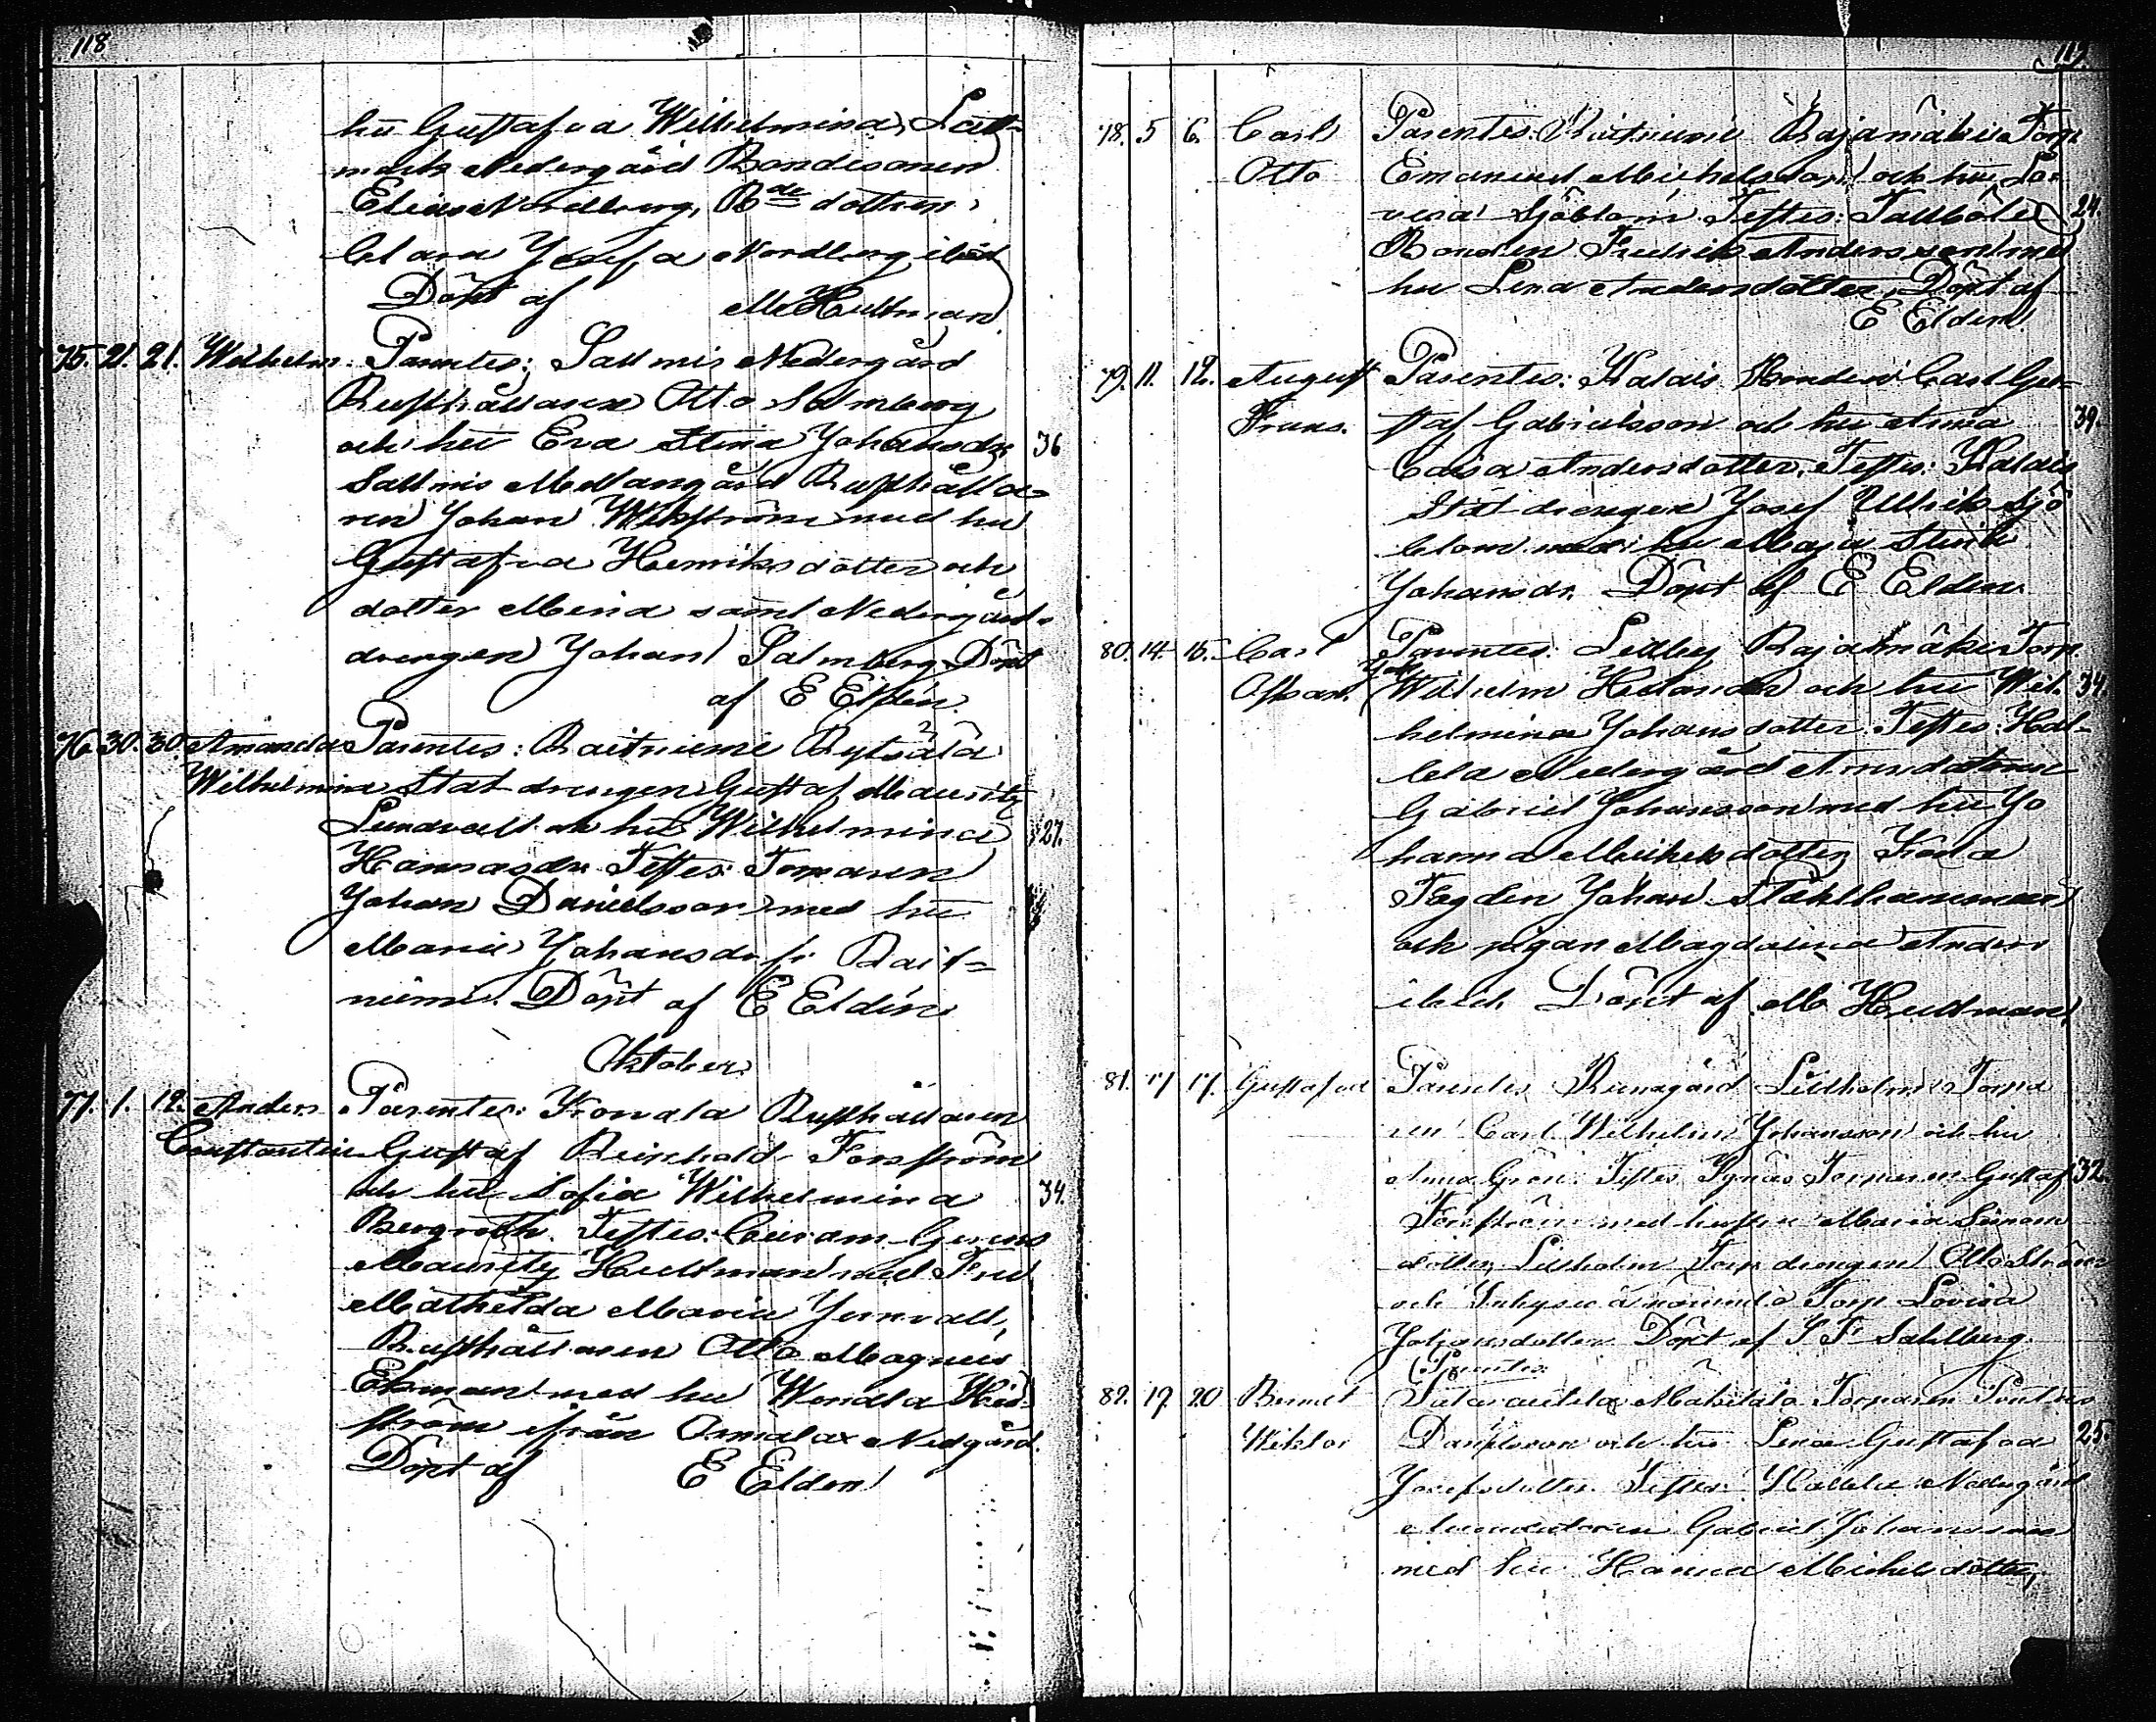 118
hu Gustafva Wilhelmina, Satt-
mark Nedergård Bondesonen
Elias Nordberg, Bde dottren
Clara Josefa Nordberg ibid
Döpt af M Hultman
75. 21. 21. Wilhelm Parentes: Sallmis Nedergård
Rusthållaren Otto Salmberg
och hu Eva Stina Johansdr 36
Sallmis Mellangård Rusthålla-
ren Johan Wikström med hu
Gustafva Henriksdotter och
dotter Mina samt Nedergård-
drengen Johan Salmberg Döpt
af E Eldén
76. 30. 30. Amanda Parentes: Raitniemi Rytsälä
Wilhelmina Statdrengen Gustaf Mauritz
Lundvall och hu Wilhelmina 27.
Hannasdr Testes: Torparen
Johan Danielsson med hu
Maria Johansdr fr. Rait-
niemi. Döpt af E Eldén
Oktober
77. 1. 12. Anders Parentes: Konala Rusthållaren
Constantin Gustaf Reinhold Forsström
och hu Sofia Wilhelmina 34.
Bergroth. Testes: Curam Gerens
Mauritz Hultman med Fru
Mathilda Maria Jernvall,
Rusthållaren Otto Magnus
Ekman med hu Wendla Hed-
ström ifrån Osmalax Nedgård.
Döpt af E Elden
119.
78. 5 6. Carl Parentes: Raitniemi Rajamäki Torp.
Otto Emanuel Michelsson och hu Lo-
visa Sjöblom Testes: Tallböle 24.
Bonden Fredrik Andersson med
hu Lena Andersdotter, Döpt af
E Elden
79. 11. 12. August Parentes: Kalais Bonden Carl Gu-
Frans. staf Gabrielsson och hu Anna 39.
Caisa Andersdotter. Testes: Kalais
Statdrengen Josef Ulrik Sjö
blom med hu Maja Stina
Johansdr. Döpt af E Elden.
80. 14. 15. Carl Parentes: Lillby Rajalmäki Torp.
Oskar. Joh Wilhelm Helander och hu Wil- 34.
helmina Johansdotter. Testes: Hal-
lela Nedergård Arrendatoren
Gabriel Johansson med hu Jo
hanna Michelsdotter, Krono
Fogden Johan Stålhammar
och pigan Magdalena Anders
ibid. Döpt af M Hultman
81. 17 17. Gustafva Parentes: Runagård Lillholm Torpa
ren Carl Wilhelm Johansson och hu
Anna Grön. Testes Pynäs Torparen Gustaf 32.
Forsström med hustru Maria Simons
dotter, Lillholm Torp drengen Otto Ström
och Inhyses å nämnda Torp Lovisa
Johansdotter. Döpt af S F Sahlberg.
Parentes:
82. 19. 20 Bernet Makitalo Torparen
Wiktor Danielsson och hu Lena Gustafva 25.
Josefsdotter. Testes: Hallela Nedergård
Arrendatoren Gabriel Johansson
med hu Hanna Michelsdotter,